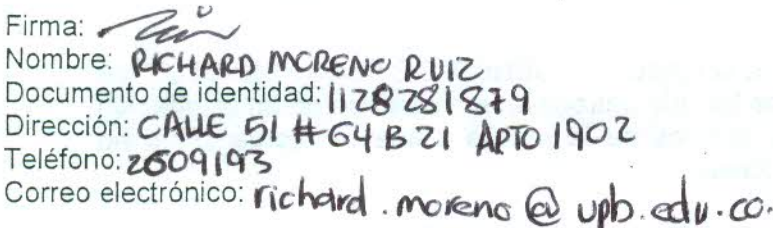 Firma:
Nombre: RICHARD MORENO RUIZ
Documento de identidad: 1128281879
Dirección: CALLE 51 # 64 B 21 APTO 1902
Teléfono: 2609193
Correo electrónico: richard.moreno@upb.edu.co.